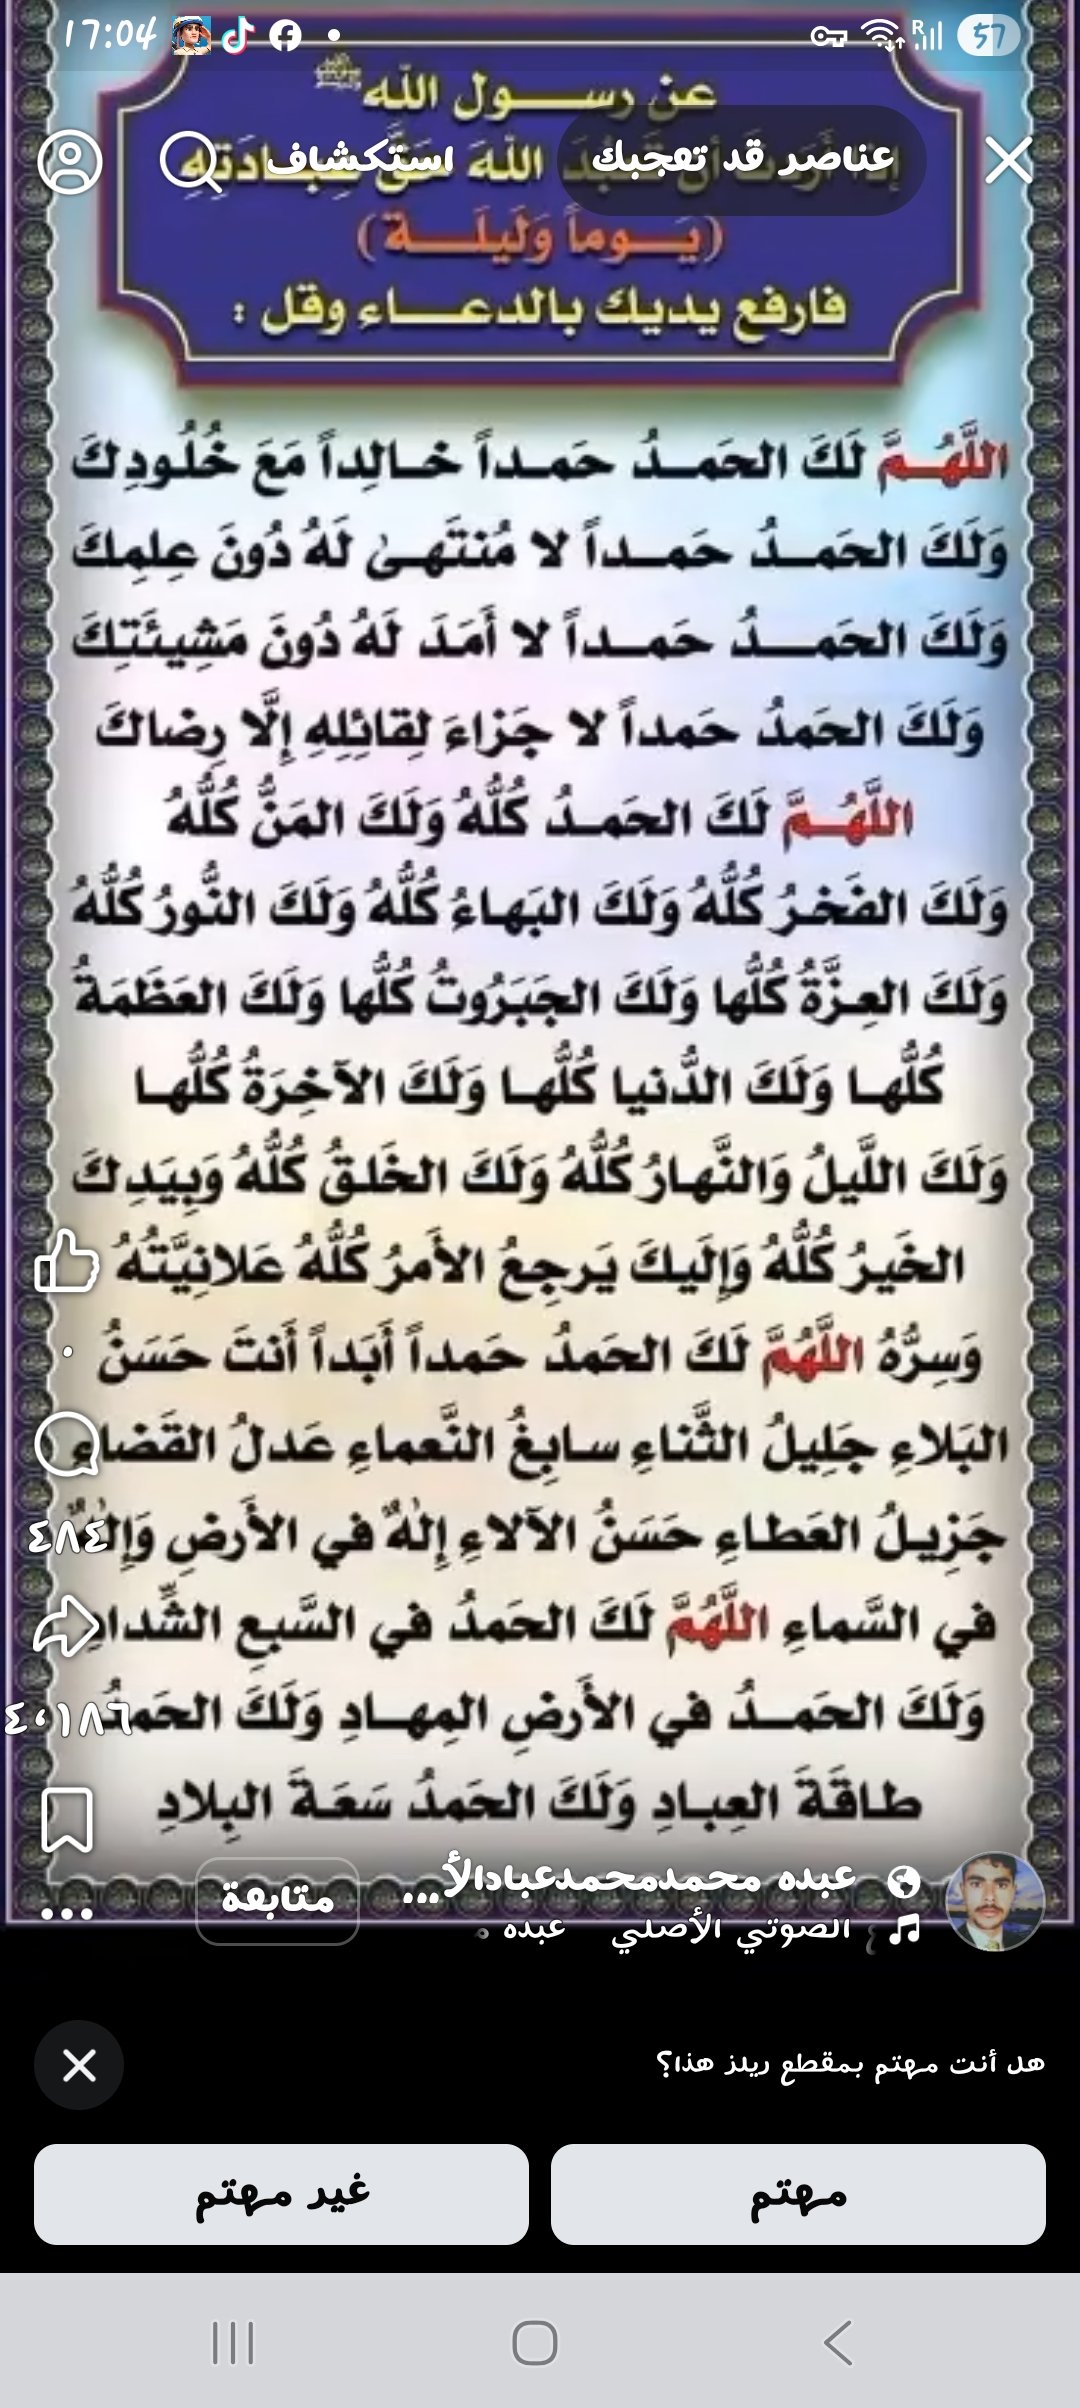 17:04
57
عن رسول الله ﷺ
عناصر قد تعجبك
استكشاف
الله حق
(يَوماً وَلَيلَة)
فارفع يديك بالدعاء وقل :
اللَّهُمَّ لَكَ الحَمدُ حَمداً خالِداً مَعَ خُلُودِكَ
وَلَكَ الحَمدُ حَمداً لا مُنتَهىٰ لَهُ دُونَ عِلمِكَ
وَلَكَ الحَمدُ حَمداً لا أَمَدَ لَهُ دُونَ مَشِيئَتِكَ
وَلَكَ الحَمدُ حَمداً لا جَزاءَ لِقائِلِهِ إِلَّا رِضاكَ
اللَّهُمَّ لَكَ الحَمدُ كُلُّهُ وَلَكَ المَنُّ كُلُّهُ
وَلَكَ الفَخرُ كُلُّهُ وَلَكَ البَهاءُ كُلُّهُ وَلَكَ النُّورُ كُلُّهُ
وَلَكَ العِزَّةُ كُلُّها وَلَكَ الجَبَرُوتُ كُلُّها وَلَكَ العَظَمَةُ
كُلُّها وَلَكَ الدُّنيا كُلُّها وَلَكَ الآخِرَةُ كُلُّها
وَلَكَ اللَّيلُ وَالنَّهارُ كُلُّهُ وَلَكَ الخَلقُ كُلُّهُ وَبِيَدِكَ
الخَيرُ كُلُّهُ وَإِلَيكَ يَرجِعُ الأَمرُ كُلُّهُ عَلانِيَّتُهُ
وَسِرُّهُ اللَّهُمَّ لَكَ الحَمدُ حَمداً أَبَداً أَنتَ حَسَنُ
البَلاءِ جَلِيلُ الثَّناءِ سابِغُ النَّعماءِ عَدلُ القَضاءِ
جَزِيلُ العَطاءِ حَسَنُ الآلاءِ إِلٰهٌ في الأَرضِ وَإِلٰهٌ
٤٨٤
في السَّماءِ اللَّهُمَّ لَكَ الحَمدُ في السَّبعِ الشِّدادِ
وَلَكَ الحَمدُ في الأَرضِ المِهادِ وَلَكَ الحَمدُ
٤٬١٨٦
طاقَةَ العِبادِ وَلَكَ الحَمدُ سَعَةَ البِلادِ
عبده محمدمحمدعبادالأ...
متابعة
الصوتي الأصلي عبده
هل أنت مهتم بمقطع ريلز هذا؟
مهتم
غير مهتم